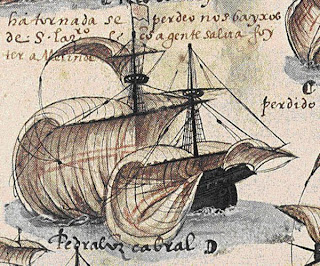 ha tornada se perdeo nos bayxos
de S. laz.ro e a gente salva foy
ter a Melinde
C
perdido
Pedralvz cabral D